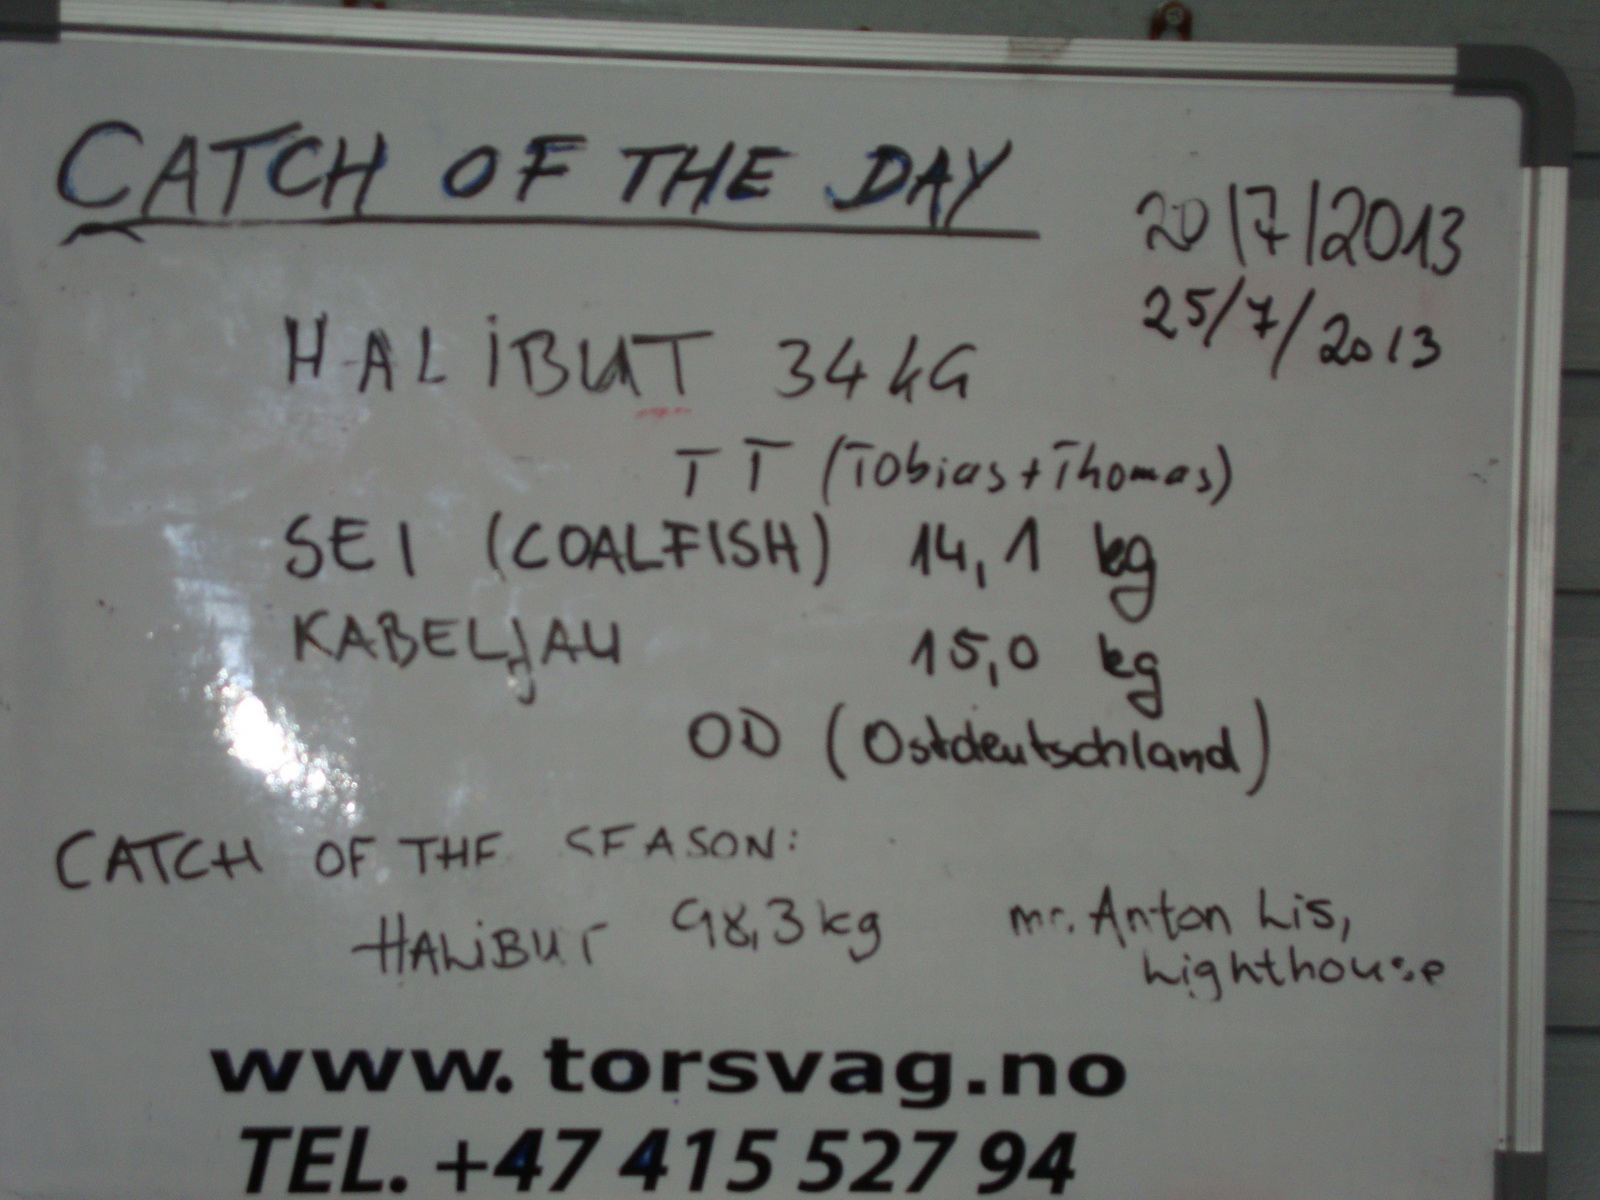 CATCH OF THE DAY
20/7/2013
25/7/2013
HALiBUT 34 kG
TT (Tobias + Thomas)
SEI (COALFISH) 14,1 kg
KABELJAU 15,0 kg
OD (Ostdeutschland)
CATCH OF THE SEASON:
HALiBUT 98,3 kg mr. Anton Lis,
Lighthouse
www.torsvag.no
TEL. +47 415 527 94